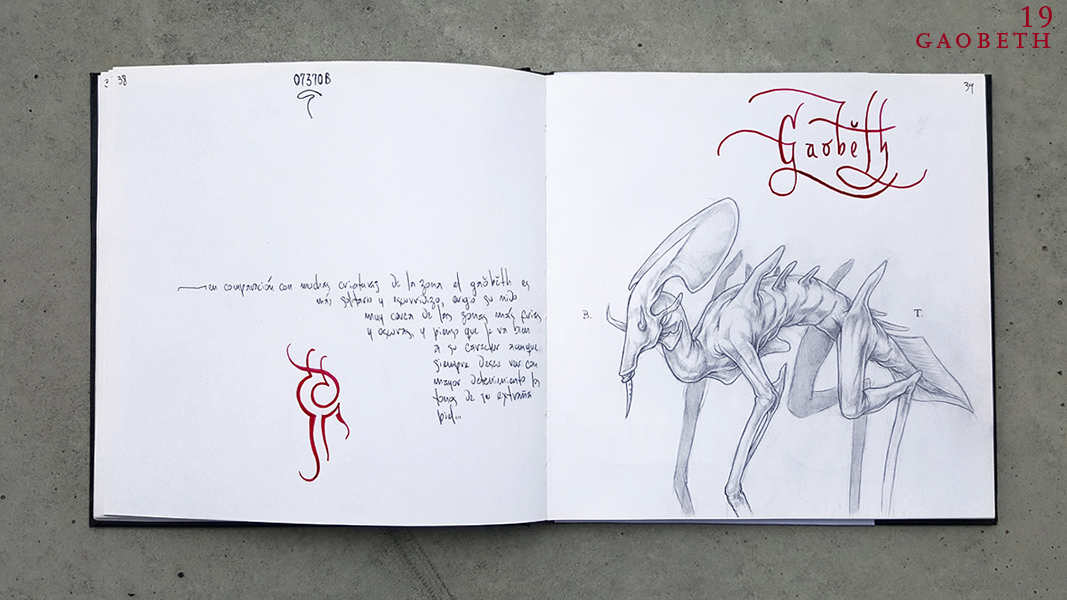 19
GAOBETH
38
07370B
en comparación con muchas criaturas de la zona el gaobeth es
más solitario y escurridizo, su nido
muy cerca de las zonas más frías
y oscuras, y pienso que le va bien
a su caracter aunque
siempre deseo ver con
mayor detenimiento los
tonos de su extraña
piel...
39
Gaobeth
B.
T.